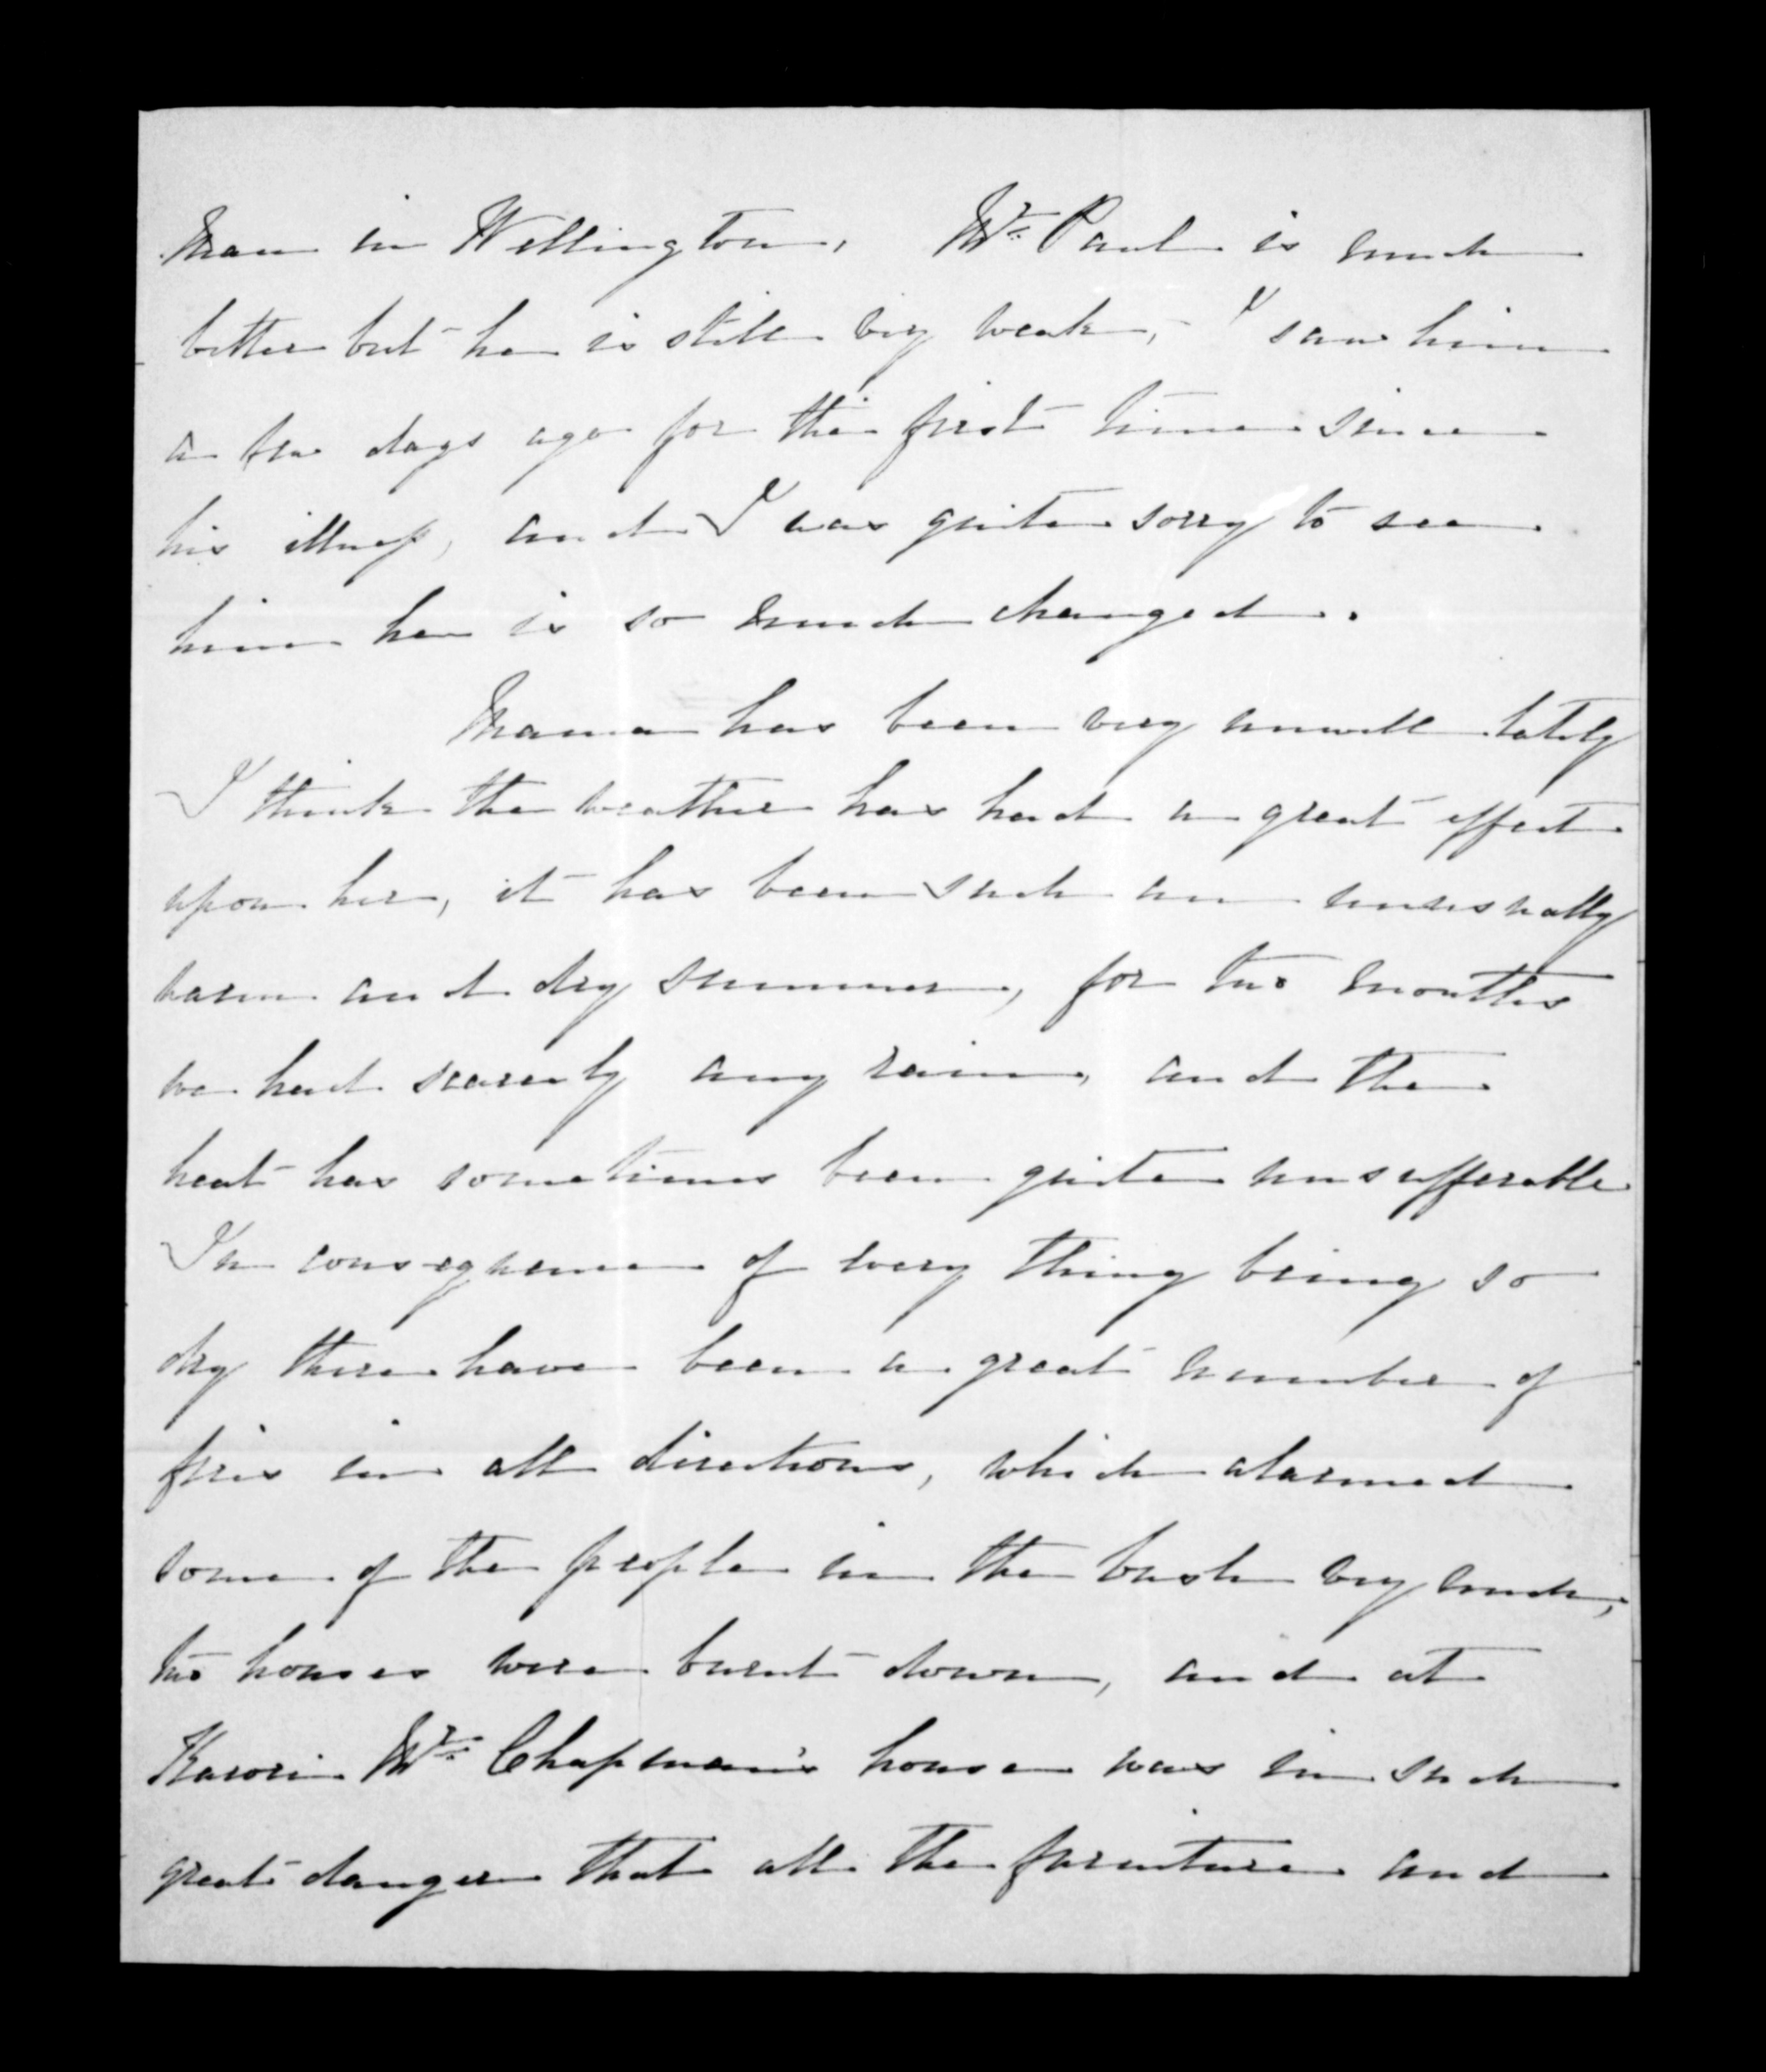 man in Wellington, Mr. Paul is much
better but he is still very weak, I saw him
a few days ago for the first time since
his illness, and I was quite sorry to see
him he is so much changed.
Mama has been very unwell lately
I think the weather has had a great effect
upon her, it has been such an unusually
warm and dry summer, for two months
we had scarcely any rain, and the
heat has sometimes been quite unsufferable
In consequence of every thing being so
dry there have been a great number of
fires in all directions, which alarmed
some of the people in the bush very much,
two houses were burnt down, and at
Karori Mr. Chapman's house was in such
great danger that all the furniture and